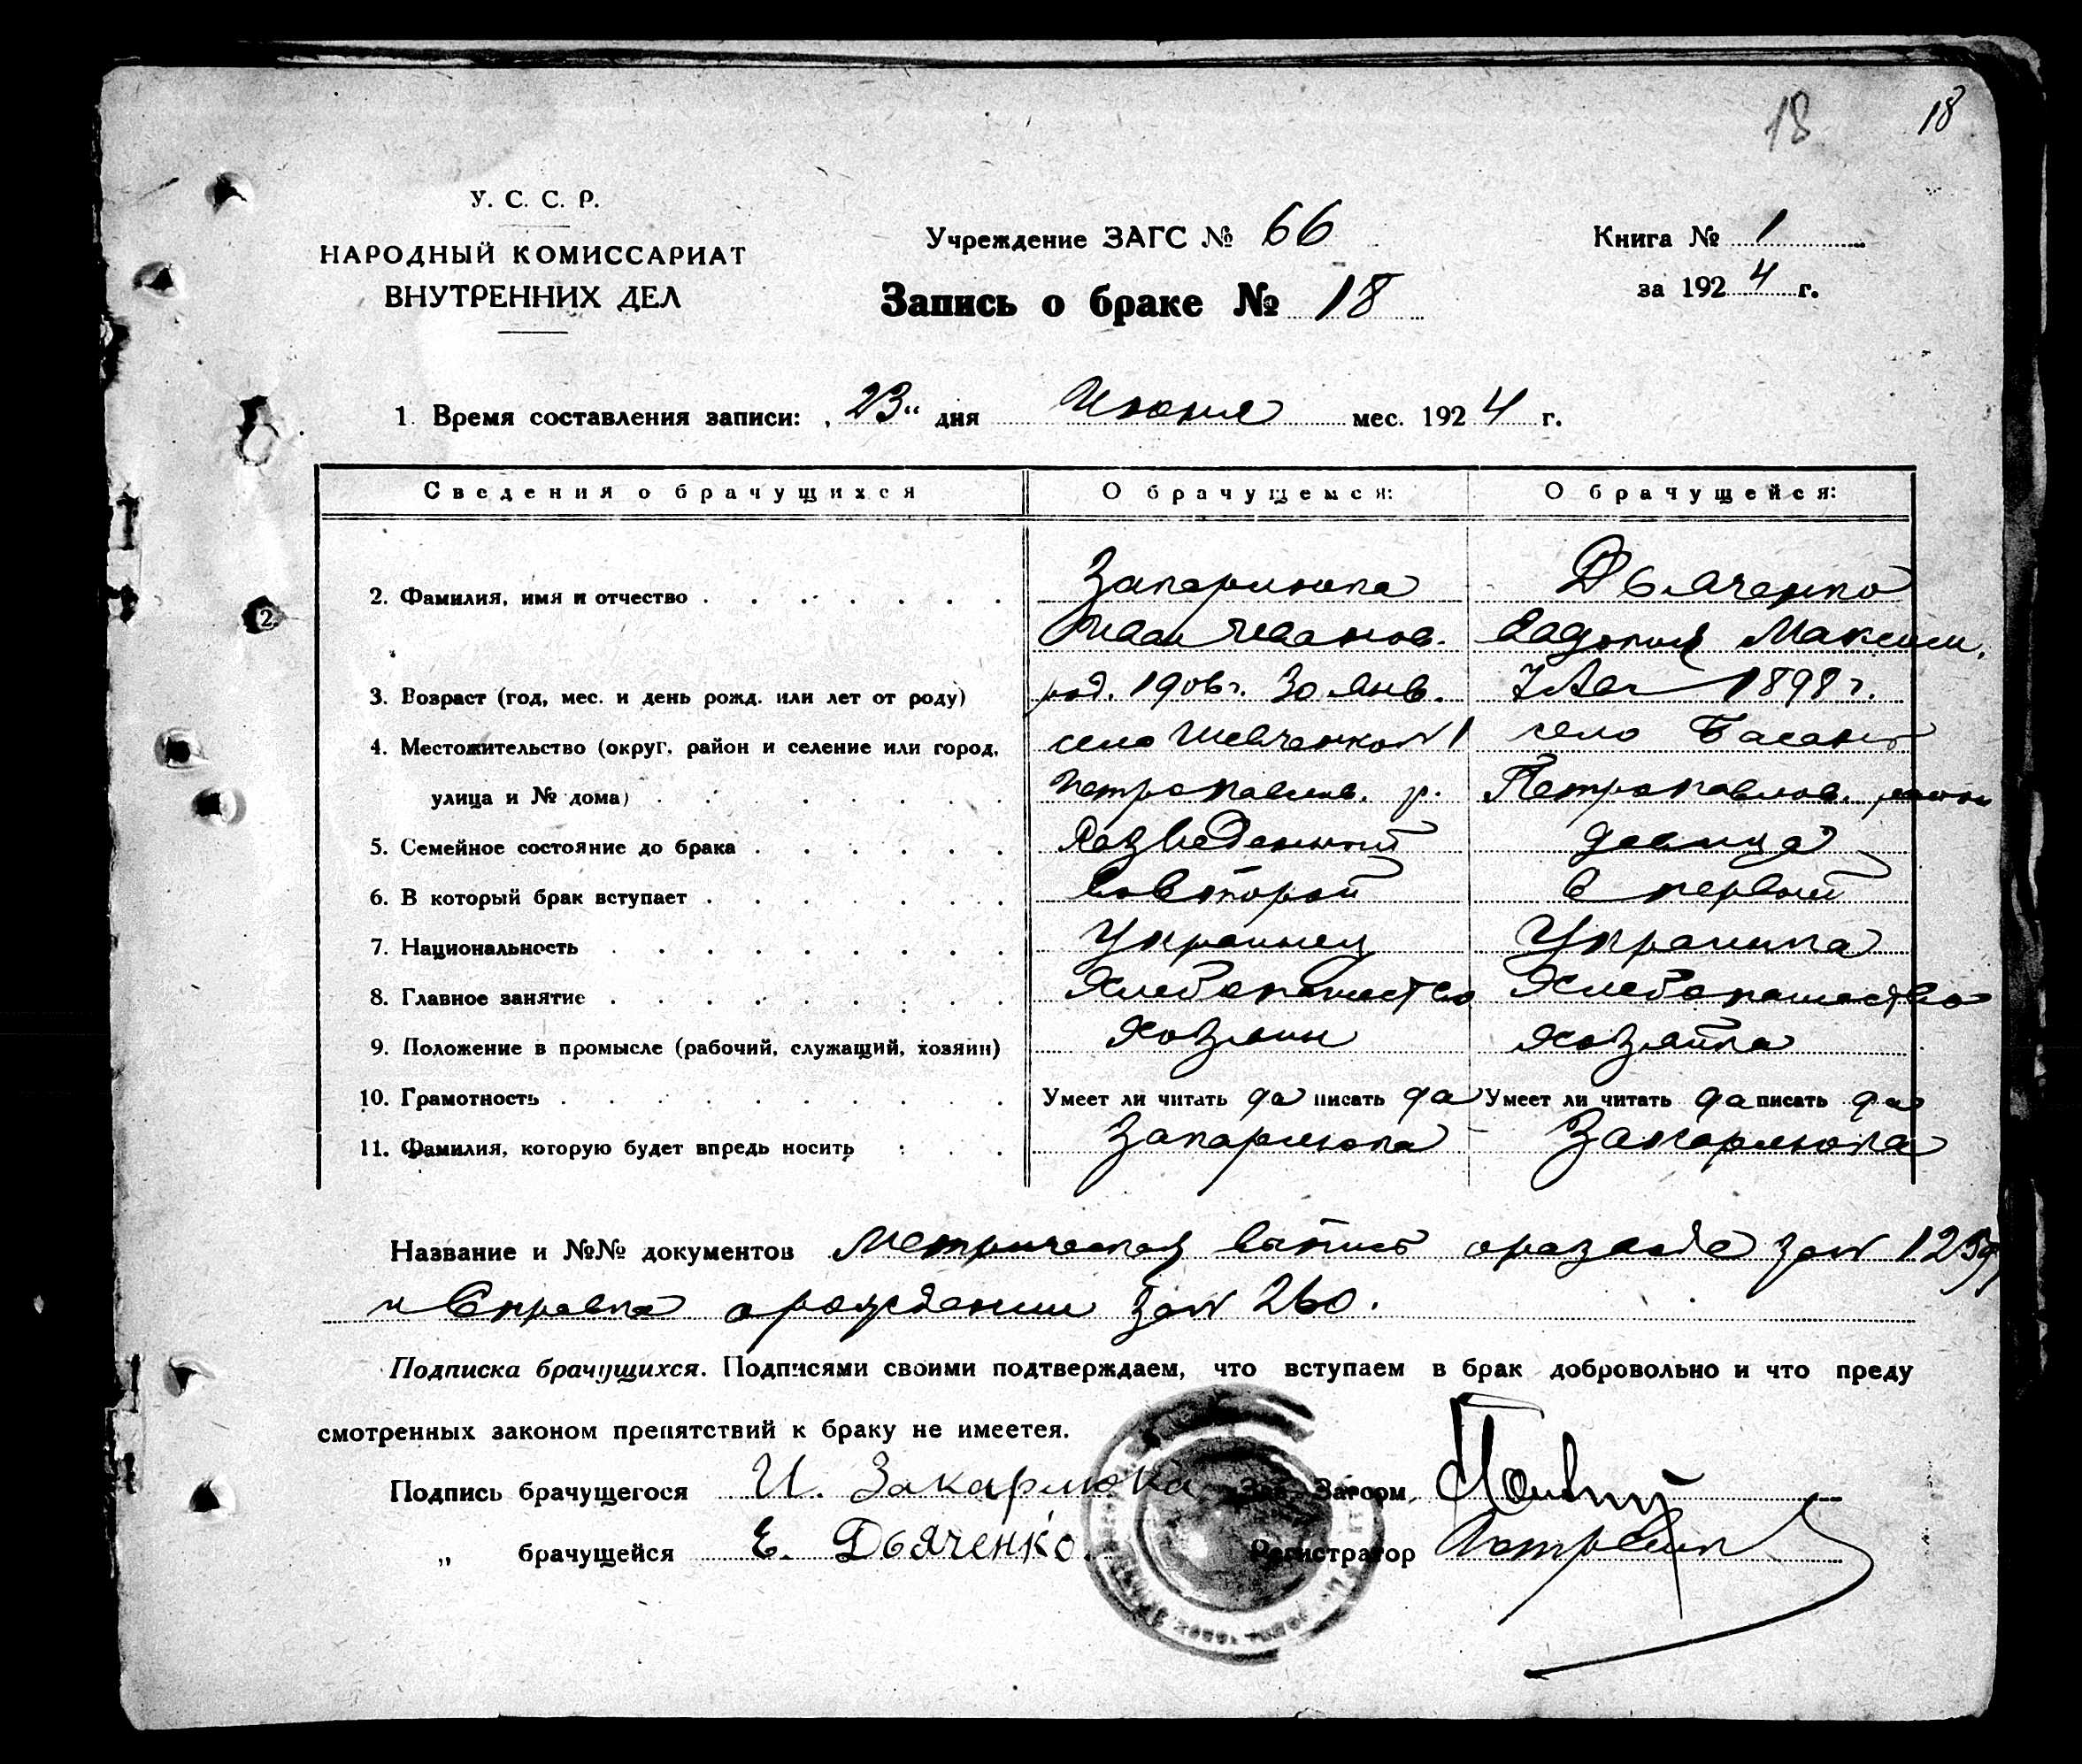 18 18
У. С. С. Р.
НАРОДНЫЙ КОМИССАРИАТ
ВНУТРЕННИХ ДЕЛ
Учреждение ЗАГС № 66
Книга № 1
Запись о браке № 18
за 1924 г.
1. Время составления записи: „23“ дня Июня мес. 1924 г.
Сведения о брачущихся О брачущемся: О брачущейся:
2. Фамилия, имя и отчество Закарлюка Дьяченко
Иван Иванов. Евдокия Максим.
3. Возраст (год, мес. и день рожд. или лет от роду) род. 1906 г. 30 янв. 1898 г.
4. Местожительство (округ, район и селение или город, село Шевченко N 1 село Басань
улица и № дома) Петропавлов. р. Петропавлов. район
5. Семейное состояние до брака Разведенный девица
6. В который брак вступает Вовторой в первый
7. Национальность Украинец Украинка
8. Главное занятие Хлебопашество Хлебопашество
9. Положение в промысле (рабочий, служащий, хозяин) Хозяин Хозяйка
10. Грамотность Умеет ли читать да писать да Умеет ли читать да писать да
11. Фамилия, которую будет впредь носить Закарлюка Закарлюка
Название и №№ документов Метрическая выпись оразводе заN
и Справка орождении заN 260.
Подписка брачущихся. Подписями своими подтверждаем, что вступаем в брак добровольно и что преду
смотренных законом препятствий к браку не имеетея.
Подпись брачущегося И. Закарлюка Зав. Загсом
„ брачущейся Е. Дьяченко. Регистратор
2